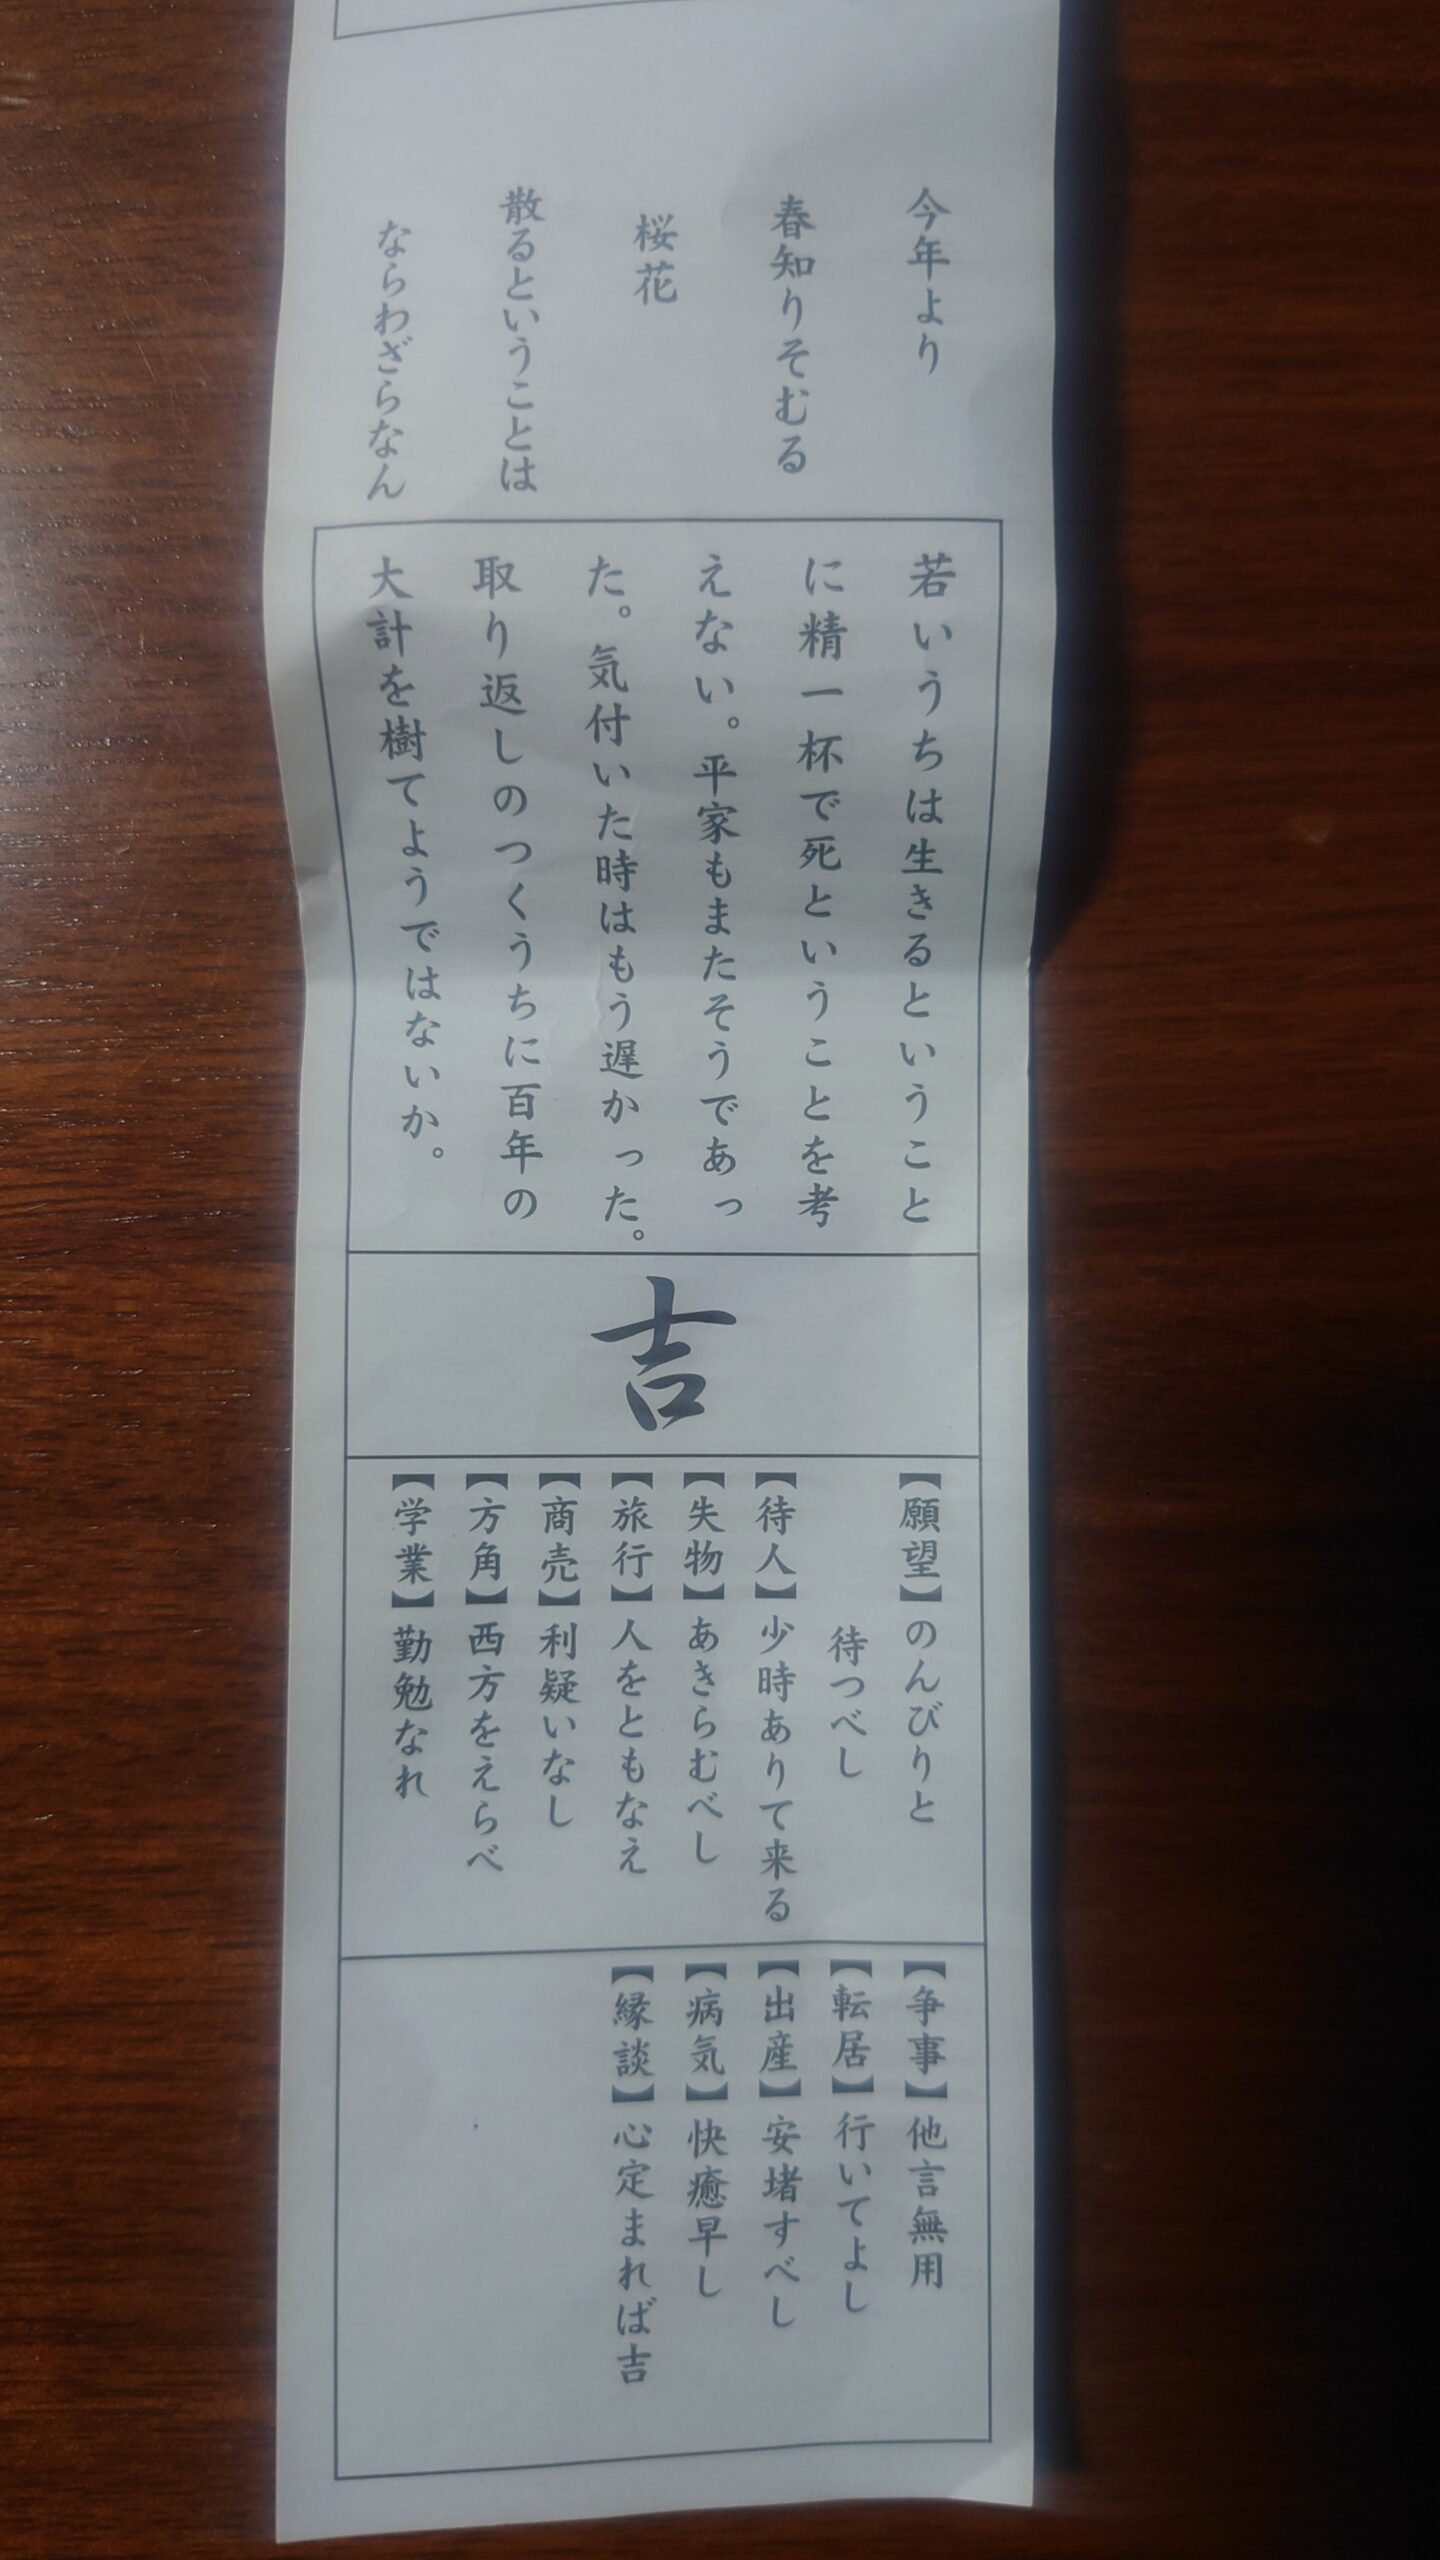 今年より
春知りそむる
桜花
散るということは
ならわざらなん
若いうちは生きるということ
に精一杯で死ということを考
えない。平家もまたそうであっ
た。気付いた時はもう遅かった。
取り返しのつくうちに百年の
大計を樹てようではないか。
吉
【願望】のんびりと
待つべし
【待人】少時ありて来る
【失物】あきらむべし
【旅行】人をともなえ
【商売】利疑いなし
【方角】西方をえらべ
【学業】勤勉なれ
【争事】他言無用
【転居】行いてよし
【出産】安堵すべし
【病気】快癒早し
【縁談】心定まれば吉